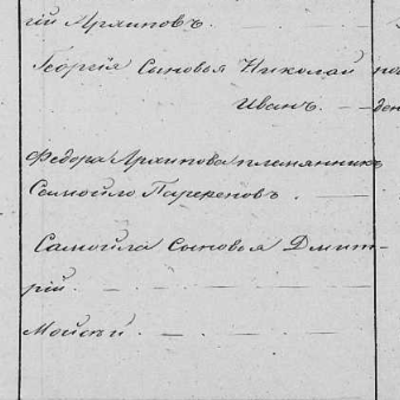 гій Архиповъ.
Георгія Сыновья Николай
Иванъ.
Федора Архипова племянникъ
Самойло Парфеновъ.
Самойла Сыновья Дмит-
рій.
Мойсѣй.